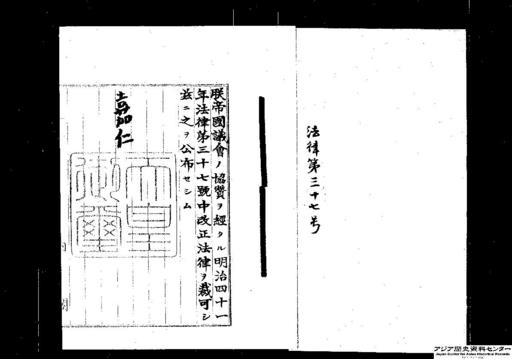 法律第三十七号
朕帝國議會ノ協贊ヲ經タル明治四十一
年法律第三十七號中改正法律ヲ裁可シ
茲ニ之ヲ公布セシム
嘉仁
天皇御璽
アジア歴史資料センター
Japan Center for Asian Historical Records